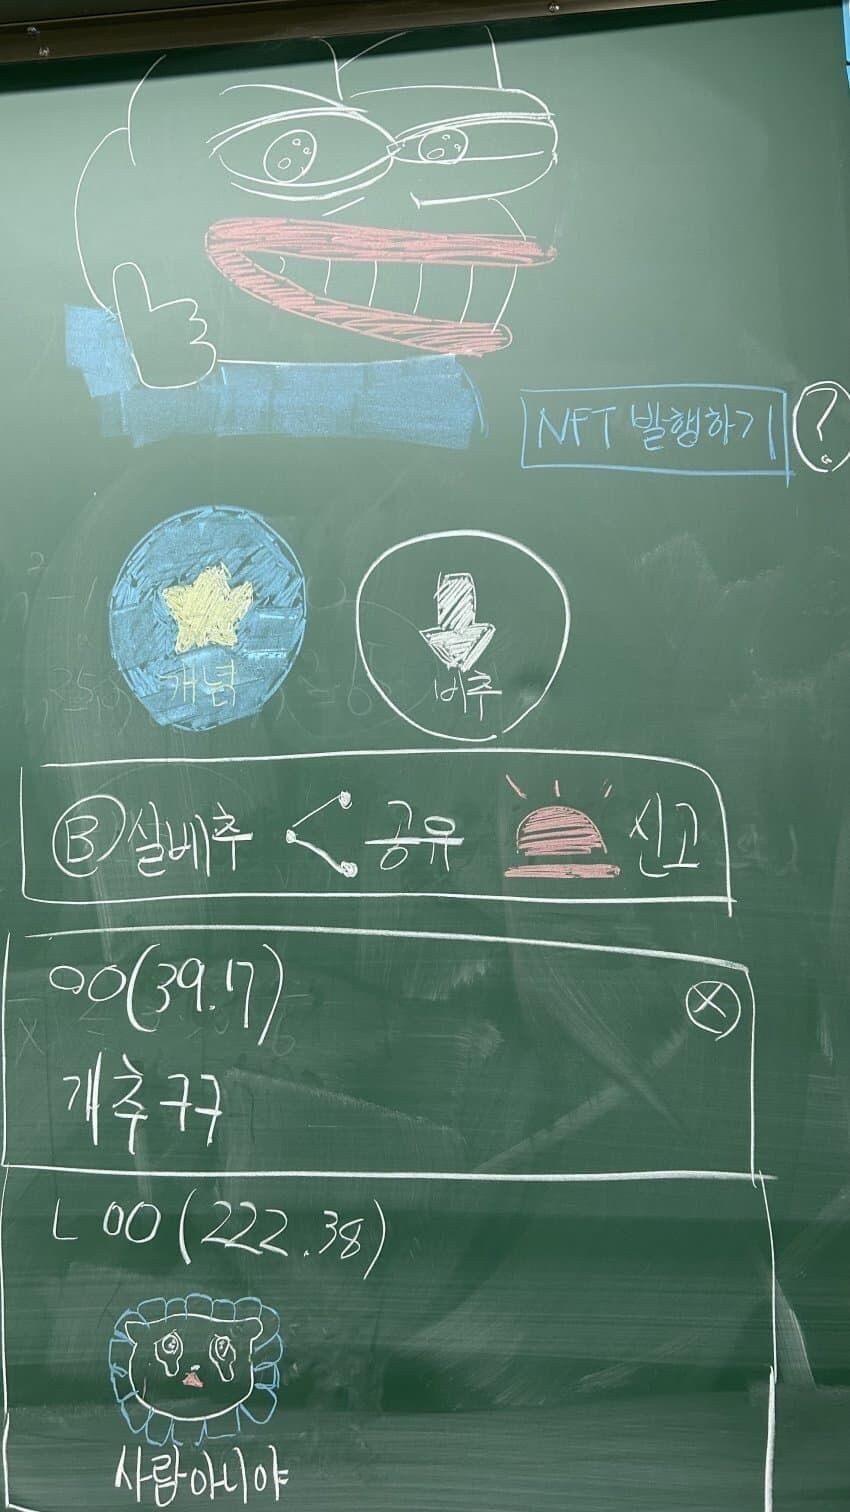 NFT 발행하기 ?
개념 비추
B 실베추 공유 신고
ㅇㅇ(39.17) X
개추 ㅋㅋ
ㄴ ㅇㅇ(222.38)
사람아니야